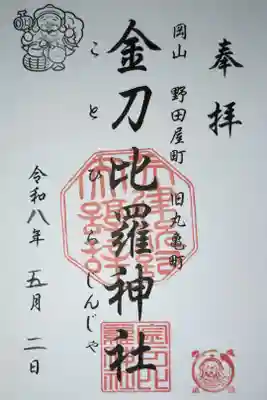 奉拝
岡山 野田屋町 旧丸亀町
金刀比羅神社
ことひらじんじゃ
令和八年 五月 二日